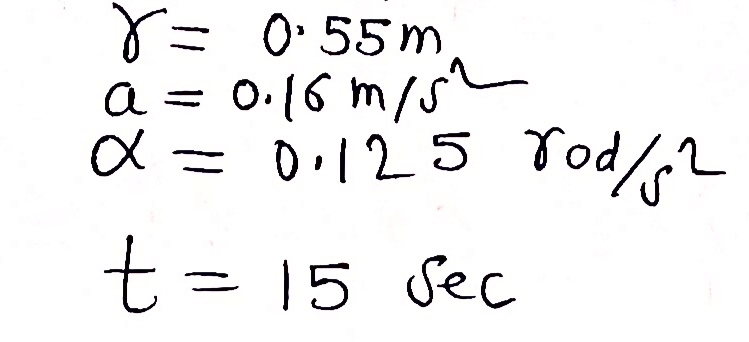 r = 0.55 m
a = 0.16 m/s²
α = 0.125 rod/s²
t = 15 sec